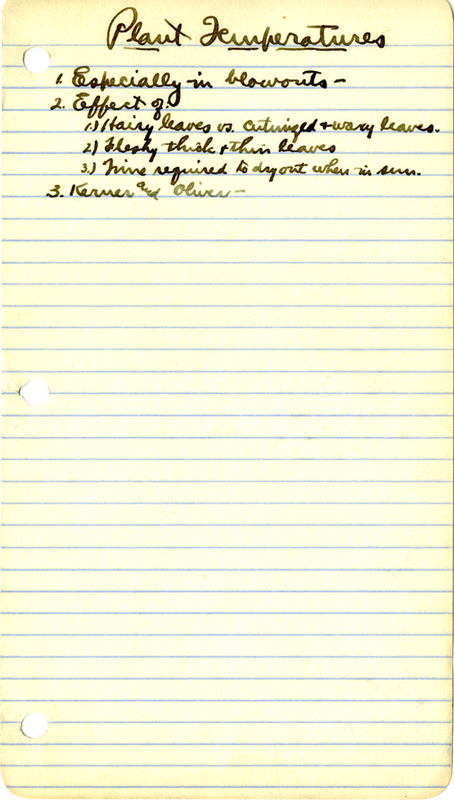 Plant Temperatures
1. Especially in blowouts -
2. Effect of:
1.) Hairy leaves vs. cutinized + waxy leaves.
2) Fleshy thick + thin leaves
3.) Time required to dry out when in sun.
3. Kerner and Oliver -